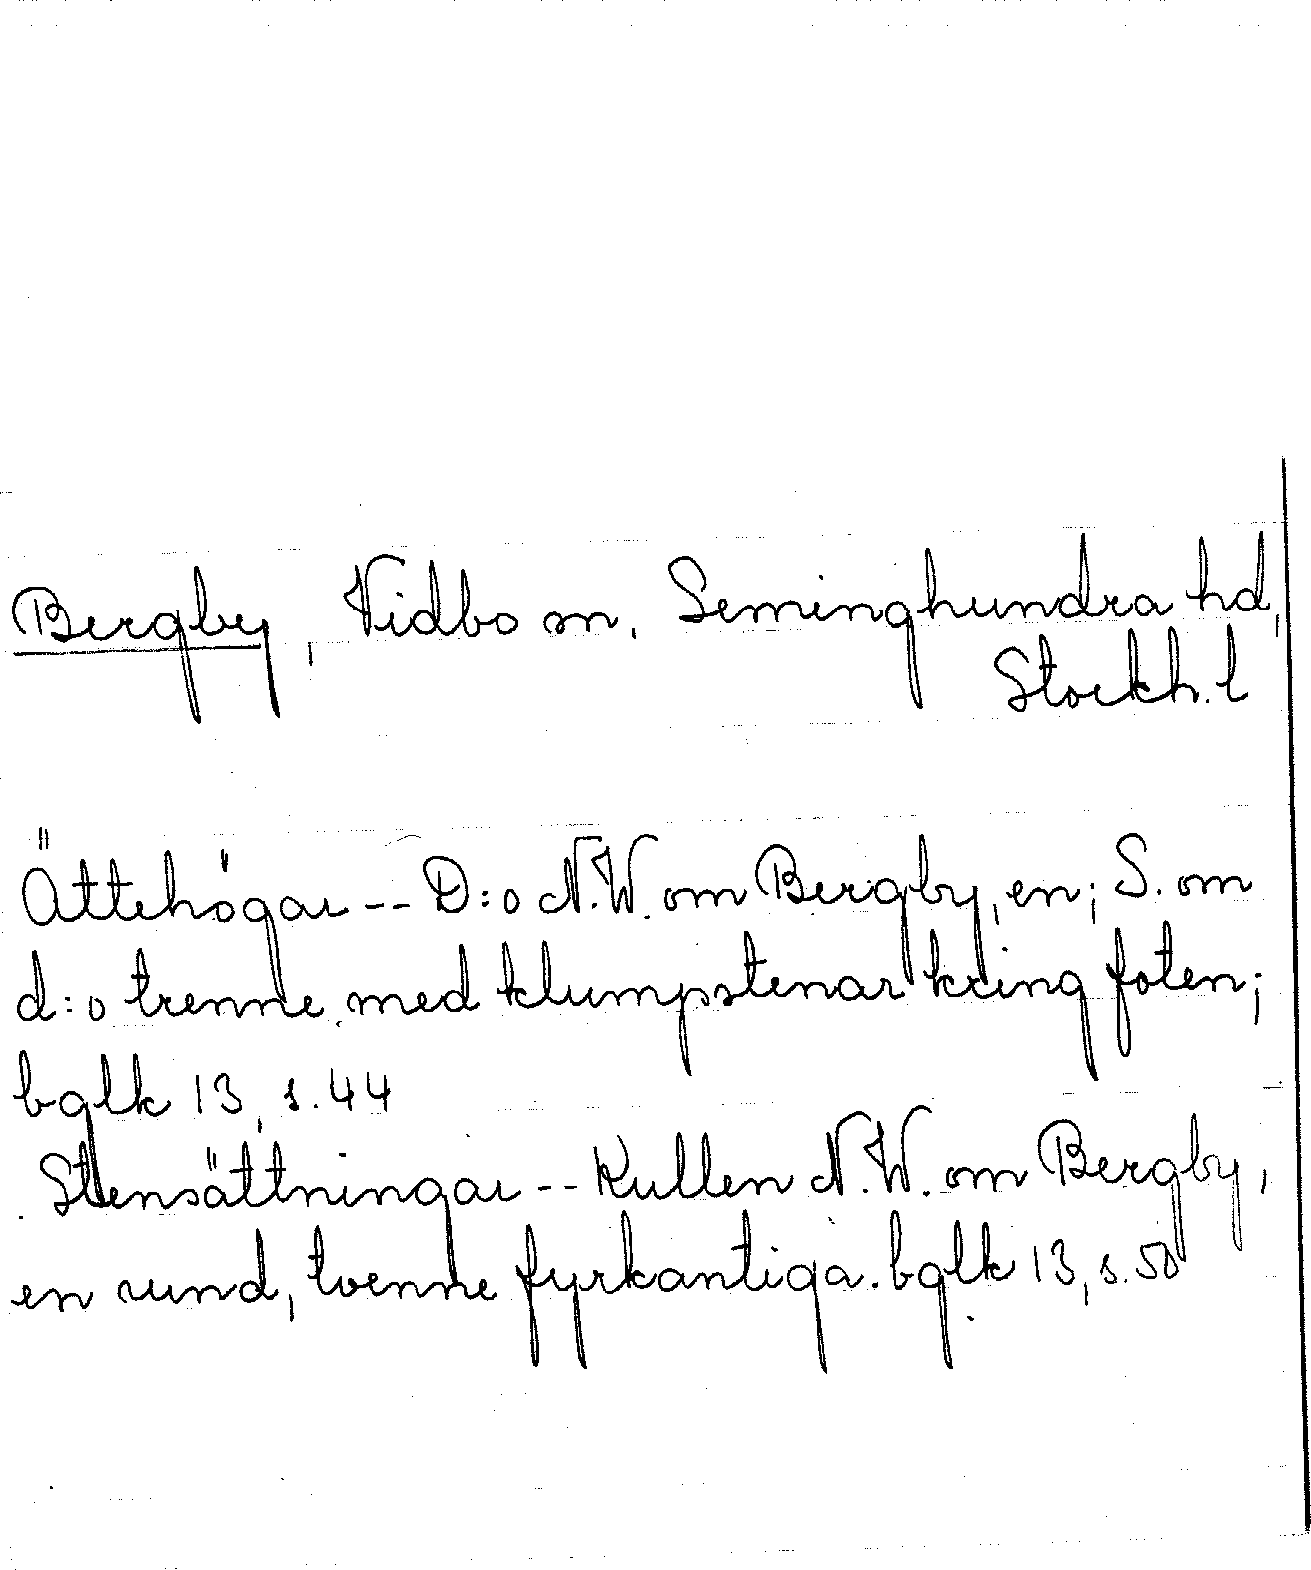 Bergby, Vidbo sn, Seminghundra hd,
Stockh. l
Ättehögar -- D:o N.W. om Bergby, en; S. om
d:o trenne med klumpstenar kring foten;
bglk 13, s. 44
Stensättningar -- Kullen N.W. om Bergby,
en rund, tvenne fyrkantiga. bglk 13, s. 50